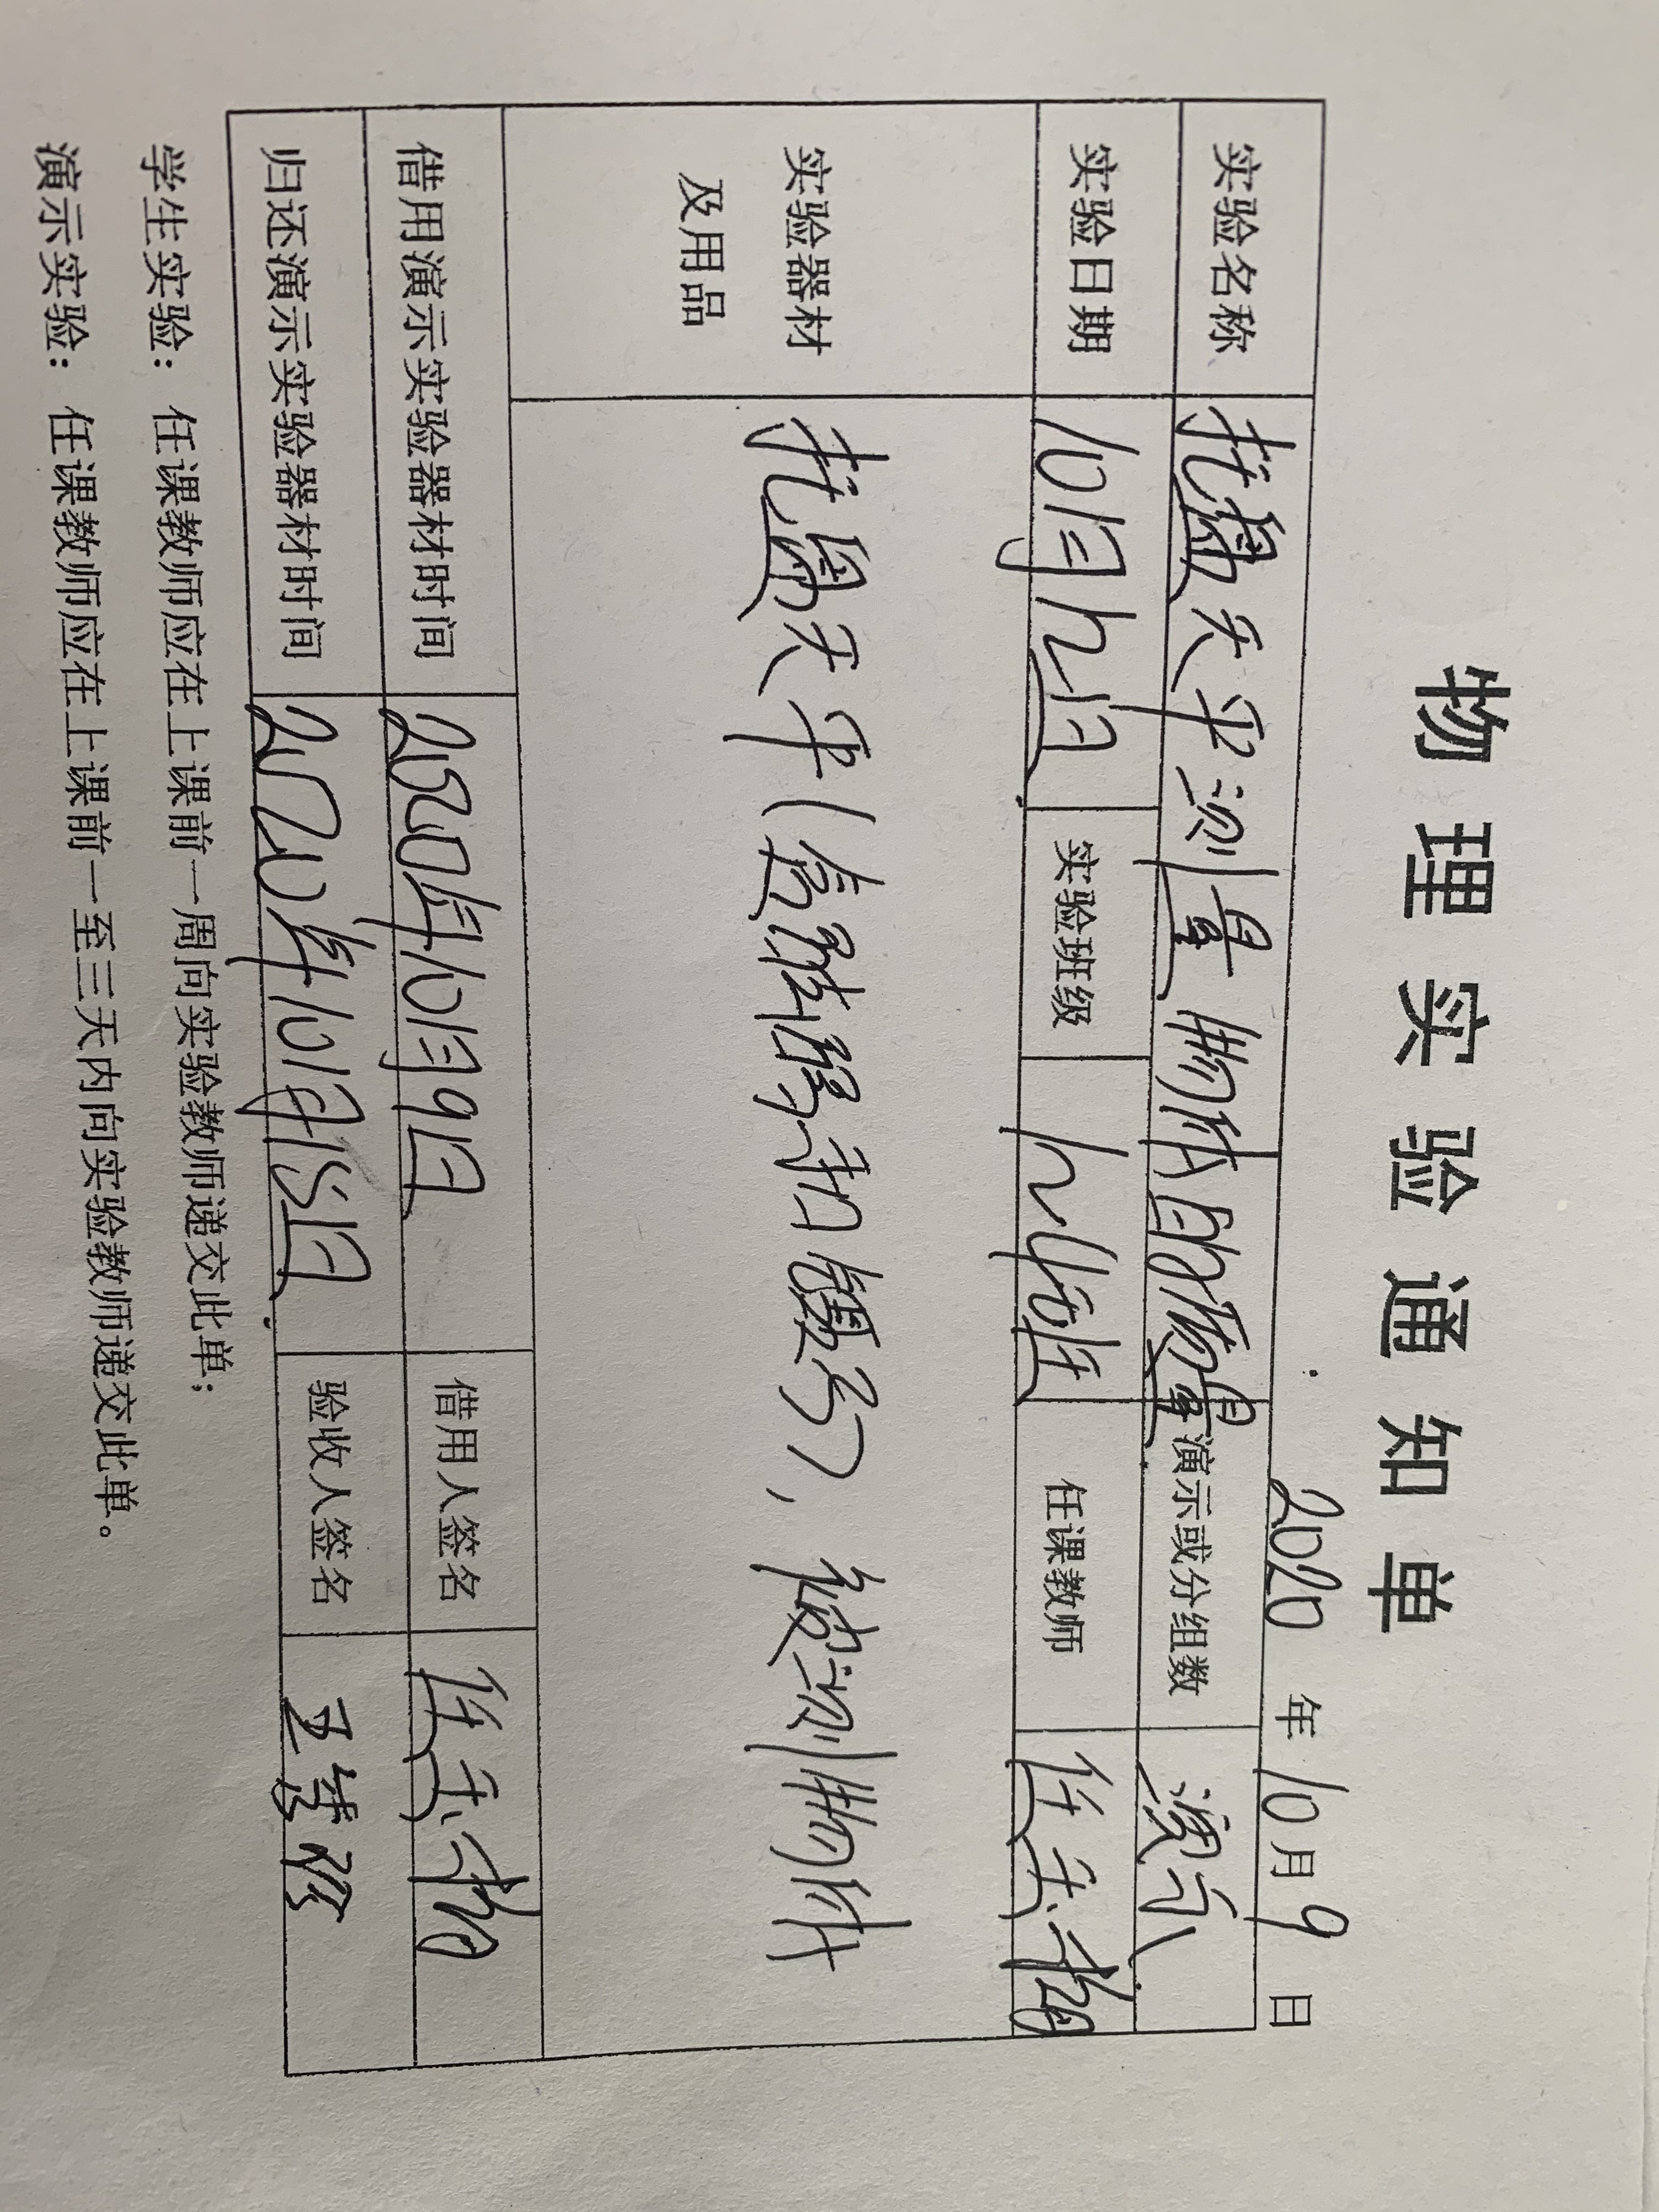 物理实验通知单
2020 年 10 月 9 日
实验名称 托盘天平测量物体的质量 演示或分组数 演示
实验日期 10月12日 实验班级 124班 任课教师
实验器材及用品 托盘天平(含砝码和镊子), 被测物体
借用演示实验器材时间 2020年10月9日 借用人签名
归还演示实验器材时间 2020年10月15日 验收人签名
学生实验：任课教师应在上课前一周向实验教师递交此单；
演示实验：任课教师应在上课前一至三天内向实验教师递交此单。